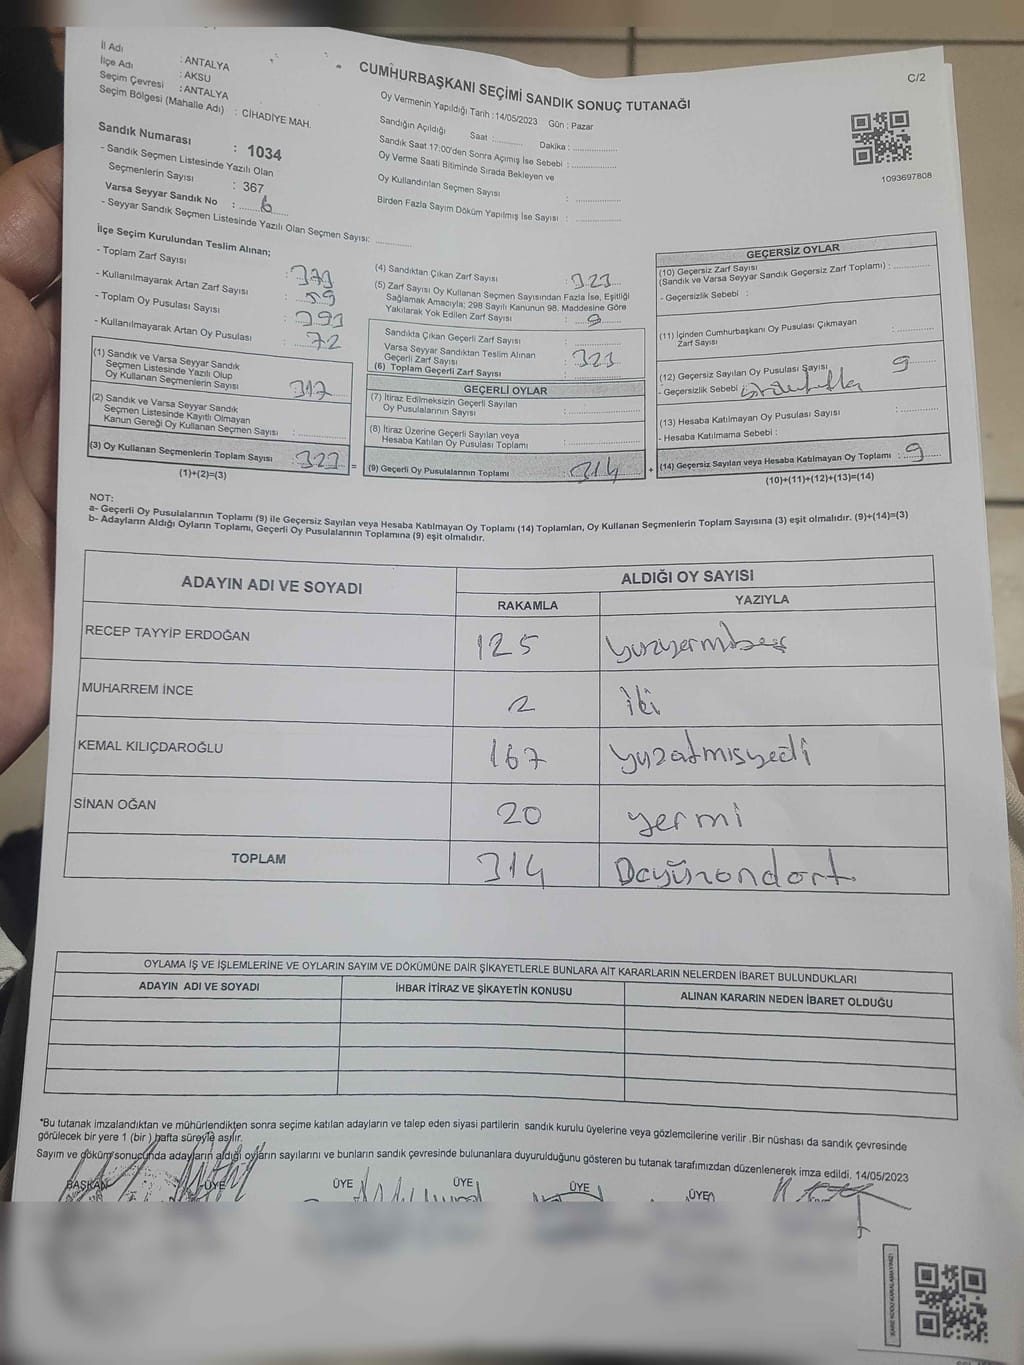 C/2
İl Adı : ANTALYA
İlçe Adı : AKSU
Seçim Çevresi : ANTALYA
Seçim Bölgesi (Mahalle Adı) : CİHADİYE MAH.
CUMHURBAŞKANI SEÇİMİ SANDIK SONUÇ TUTANAĞI
Oy Vermenin Yapıldığı Tarih :14/05/2023 Gün : Pazar
Sandığın Açıldığı Saat :............ Dakika :............
Sandık Saat 17:00'den Sonra Açımış İse Sebebi :............
Oy Verme Saati Bitiminde Sırada Bekleyen ve
Oy Kullandırılan Seçmen Sayısı :............
Birden Fazla Sayım Döküm Yapılmış İse Sayısı :............
1093697808
Sandık Numarası : 1034
- Sandık Seçmen Listesinde Yazılı Olan
Seçmenlerin Sayısı : 367
Varsa Seyyar Sandık No : 6
- Seyyar Sandık Seçmen Listesinde Yazılı Olan Seçmen Sayısı: ............
İlçe Seçim Kurulundan Teslim Alınan;
- Toplam Zarf Sayısı : 379
- Kullanılmayarak Artan Zarf Sayısı : 59
- Toplam Oy Pusulası Sayısı : 393
- Kullanılmayarak Artan Oy Pusulası : 72
(1) Sandık ve Varsa Seyyar Sandık
Seçmen Listesinde Yazılı Olup
Oy Kullanan Seçmenlerin Sayısı : 317
(2) Sandık ve Varsa Seyyar Sandık
Seçmen Listesinde Kayıtlı Olmayan
Kanun Gereği Oy Kullanan Seçmen Sayısı :............
(3) Oy Kullanan Seçmenlerin Toplam Sayısı : 323
(1)+(2)=(3)
(4) Sandıktan Çıkan Zarf Sayısı : 323
(5) Zarf Sayısı Oy Kullanan Seçmen Sayısından Fazla İse, Eşitliği
Sağlamak Amacıyla; 298 Sayılı Kanunun 98. Maddesine Göre
Yakılarak Yok Edilen Zarf Sayısı : 9
Sandıkta Çıkan Geçerli Zarf Sayısı :............
Varsa Seyyar Sandıktan Teslim Alınan
Geçerli Zarf Sayısı : 323
(6) Toplam Geçerli Zarf Sayısı
GEÇERLİ OYLAR
(7) İtiraz Edilmeksizin Geçerli Sayılan
Oy Pusulalarının Sayısı :............
(8) İtiraz Üzerine Geçerli Sayılan veya
Hesaba Katılan Oy Pusulası Toplamı :............
= (9) Geçerli Oy Pusulalarının Toplamı 314
GEÇERSİZ OYLAR
(10) Geçersiz Zarf Sayısı
(Sandık ve Varsa Seyyar Sandık Geçersiz Zarf Toplamı) :............
- Geçersizlik Sebebi :
(11) İçinden Cumhurbaşkanı Oy Pusulası Çıkmayan
Zarf Sayısı :............
(12) Geçersiz Sayılan Oy Pusulası Sayısı 9
- Geçersizlik Sebebi
(13) Hesaba Katılmayan Oy Pusulası Sayısı :............
- Hesaba Katılmama Sebebi :
+ (14) Geçersiz Sayılan veya Hesaba Katılmayan Oy Toplamı : 9
(10)+(11)+(12)+(13)=(14)
NOT:
a- Geçerli Oy Pusulalarının Toplamı (9) ile Geçersiz Sayılan veya Hesaba Katılmayan Oy Toplamı (14) Toplamları, Oy Kullanan Seçmenlerin Toplam Sayısına (3) eşit olmalıdır. (9)+(14)=(3)
b- Adayların Aldığı Oyların Toplamı, Geçerli Oy Pusulalarının Toplamına (9) eşit olmalıdır.
ADAYIN ADI VE SOYADI ALDIĞI OY SAYISI
RAKAMLA YAZIYLA
RECEP TAYYİP ERDOĞAN 125 yüzyermibeş
MUHARREM İNCE 2 iki
KEMAL KILIÇDAROĞLU 167 yuzatmısyedi
SİNAN OĞAN 20 yermi
TOPLAM 314
OYLAMA İŞ VE İŞLEMLERİNE VE OYLARIN SAYIM VE DÖKÜMÜNE DAİR ŞİKAYETLERLE BUNLARA AİT KARARLARIN NELERDEN İBARET BULUNDUKLARI
ADAYIN ADI VE SOYADI İHBAR İTİRAZ VE ŞİKAYETİN KONUSU ALINAN KARARIN NEDEN İBARET OLDUĞU
*Bu tutanak imzalandıktan ve mühürlendikten sonra seçime katılan adayların ve talep eden siyasi partilerin sandık kurulu üyelerine veya gözlemcilerine verilir .Bir nüshası da sandık çevresinde
görülecek bir yere 1 (bir ) hafta süreyle asılır.
Sayım ve döküm sonucunda adayların aldığı oyların sayılarını ve bunların sandık çevresinde bulunanlara duyurulduğunu gösteren bu tutanak tarafımızdan düzenlenerek imza edildi. 14/05/2023
BAŞKAN ÜYE ÜYE ÜYE ÜYE ÜYE